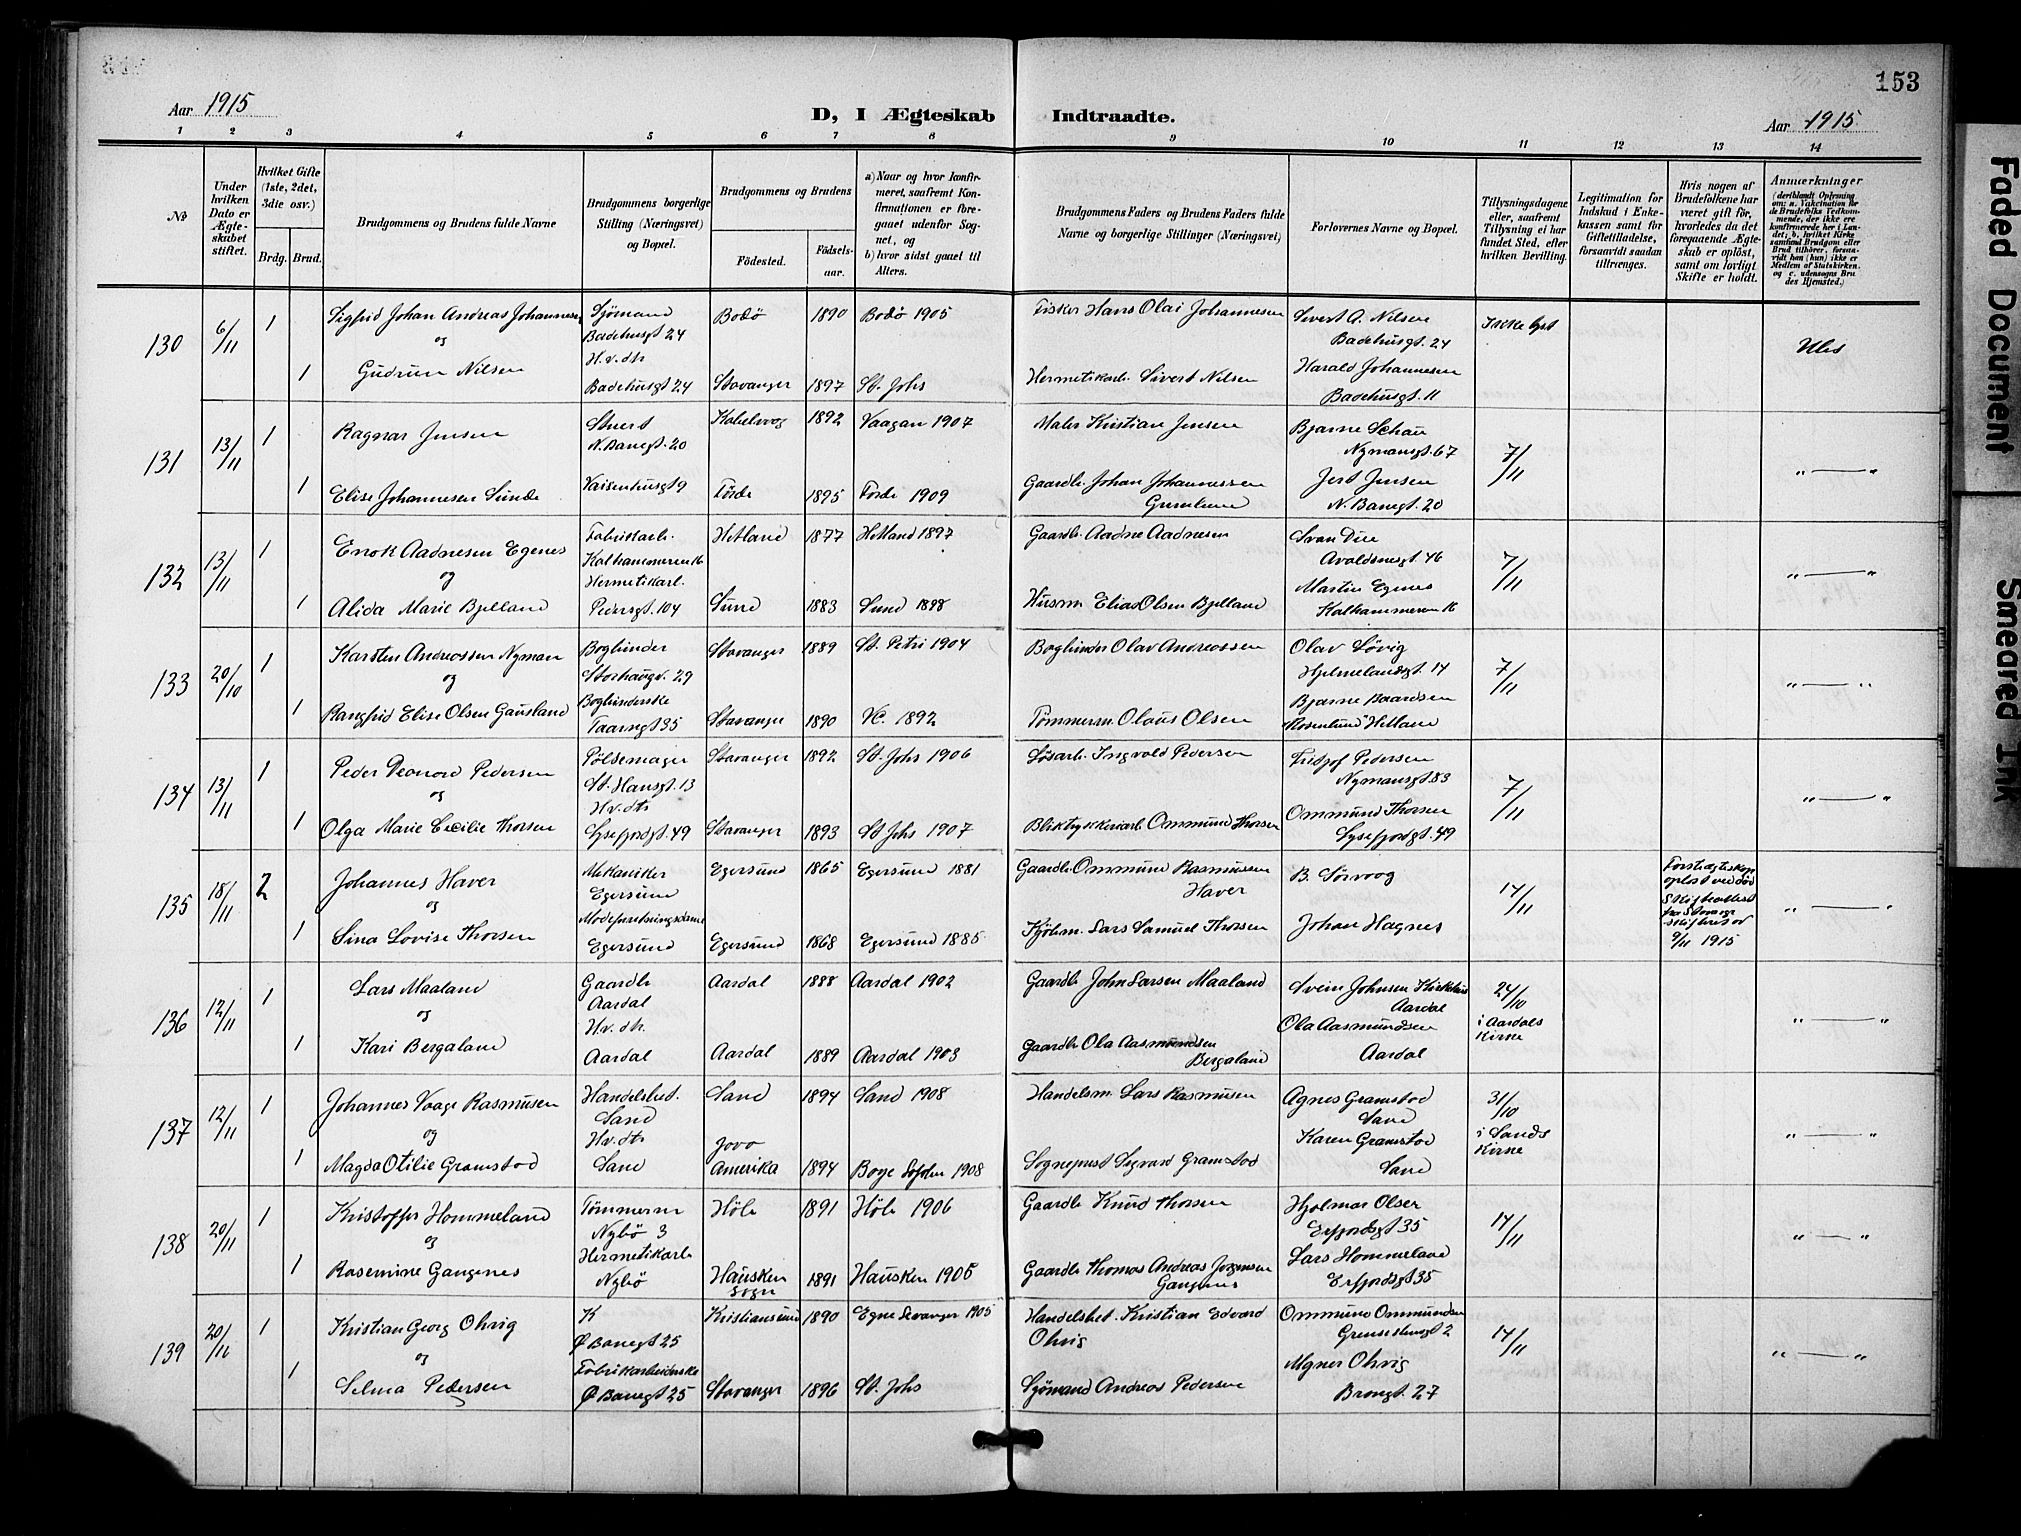 153
Aar 1915
D, I Ægteskab Indtraadte.
Aar 1915
1 2 3 4 5 6 7 8 9 10 11 12 13 14
No
Under hvilken Dato er Ægteskabet stiftet.
Hvilket Gifte (1ste, 2det, 3die osv.)
Brdg. Brud.
Brudgommens og Brudens fulde Navne
Brudgommens borgerlige Stilling (Næringsvei) og Bopæl.
Brudgommens og Brudens
Fødested.
Fødselsaar.
a) Naar og hvor konfirmeret, saafremt Konfirmationen er foregaaet udenfor Sognet, og
b) hvor sidst gaaet til Alters.
Brudgommens Faders og Brudens Faders fulde Navne og borgerlige Stillinger (Næringsvei)
Forlovernes Navne og Bopæl.
Tillysningsdagene eller, saafremt Tillysning ei har fundet Sted, efter hvilken Bevilling.
Legitimation for Indskud i Enkekassen samt for Giftetilladelse, forsaavidt saadan tiltrænges.
Hvis nogen af Brudefolkene har været gift før, hvorledes da det foregaaende Ægteskab er opløst, samt om lovligt Skifte er holdt.
Anmærkninger (deriblandt Oplysning om: a. Vakcination for de Brudefolks Vedkommende, der ikke ere konfirmerede her i Landet; b. hvilket Kirkesamfund Brudgom eller Brud tilhører, forsaavidt han (hun) ikke er Medlem af Statskirken, og c. udensogns Brudes Hjemsted.)
130 6/11 1 Sigfrid Johan Andreas Johannesen Sjømand Bodø 1890 Bodø 1905 Fisker Hans Olai Johannesen Sivert A. Nilsen Ikke lyst
og Badehusgt 24 Badehusgt. 24
H.v.dtr Harald Johannesen
1 Gudrun Nilsen Badehusgt 24 Stavanger 1897 St. Johs Hermetikarb. Sivert Nilsen Badehusgt. 11
131 13/11 1 Ragnar Jensen Stuert Kabelvaag 1892 Vaagan 1907 Maler Kristian Jensen Bjarne Schau 7/11 " — "
N. Banegt. 20 Nymansgt. 67
1 Elise Johannesen Sunde Vaisenhusgt 9 Førde 1895 Førde 1909 Gaardb. Johan Johannessen Jensen
N. Banegt. 20
132 13/11 1 Enok Aadnesen Egenes Fabrikarb. Hetland 1877 Hetland 1897 Gaardb. Aadne Aadnesen 7/11 " — "
og Kalhammeren 16 Avaldsnesgt. 46
Hermetikarb. Martin Egenes
1 Alida Marie Bjelland Pedersgt. 104 Sund 1883 Sund 1898 Husm. Elias Olsen Bjelland Kalhammeren 16
133 20/10 1 Karsten Andreassen Nyman Bogbinder Stavanger 1889 St. Petri 1904 Bogbinder Olav Andreassen Olav Løvig 7/11 " — "
og Storhaugv. 29 Hjelmelandsgt. 14
Bogbinderske Bjarne Baardsen
1 Rangfrid Elise Olsen Gausland Taarngt 35 Stavanger 1890 1892 Tømmerm. Olaus Olsen "Rosenlund" Hetland
134 13/11 1 Peder Leonard Pedersen Pølsemager Stavanger 1892 St. Johs 1906 Løsarb. Ingvald Pedersen Fridjof Pedersen 7/11 " — "
og St. Hansgt. 13 Nymansgt. 83
H.v.dtr Ommund Thorsen
1 Olga Marie Cecilie Thorsen Lysefjordgt. 49 Stavanger 1893 St. Johs 1907 Bliktrykkeriarb. Ommund Thorsen Lysefjordgt. 49
135 18/11 2 Johannes Haver Mekaniker Egersund 1865 Egersund 1881 Gaardb. Ommund Rasmussen B. Sørvaag 14/11 " — "
og Egersund Haver
Modeforretningsdame
1 Sina Lovise Thorsen Egersund Egersund 1868 Egersund 1885 Kjøbm. Lars Samuel Thorsen Johan Hagnes
Første Ægteskap opløst ved død
9/11 1915
136 12/11 1 Lars Maaland Gaardb. Aardal 1888 Aardal 1902 Gaardb. John Larsen Maaland Svein Johnsen Kirkehus 24/10 " — "
og Aardal Aardal i Aardals Kirke
H.v.dtr. Ola Aasmundsen
1 Kari Bergaland Aardal Aardal 1889 Aardal 1903 Gaardb. Ola Aasmundsen Bergaland Aardal
137 12/11 1 Johannes Vaage Rasmusen Handelsbet. Sand 1894 Sand 1908 Handelsm. Lars Rasmusen Agnes Gramstad 31/10 " — "
og Sand Sand i Sands Kirke
H.v.dtr Karen Gramstad
1 Magda Otilie Gramstad Sand Amerika 1894 1908 Sogneprest Sigvard Gramstad Sand
138 20/11 1 Kristoffer Hommeland Tømmerm Høle 1891 Høle 1906 Gaardb Knud Thorsen Hjalmar Olsen 14/11 " — "
og Nybø 3 Erfjordsgt 35
Hermetikarb. Lars Hommeland
1 Rasmine Gangenes Nybø Hausken Sogn 1891 Hausken 1905 Gaardb. Thomas Andreas Jørgensen Gangenes Erfjordsgt 35
139 20/11 1 Kristian Georg Ohrig K Kristiansund 1890 Egne Stavanger 1905 Handelsbet. Kristian Edvard Ohrig Ommund Ommundsen 14/11 " — "
og Ø Banegt 25 2
Fabrikarbeiderske Ohrig
1 Selma Pedersen Ø Banegt 25 Stavanger 1896 St. Johs Sjømand Andreas Pedersen 27
Faded Document
Smeared Ink